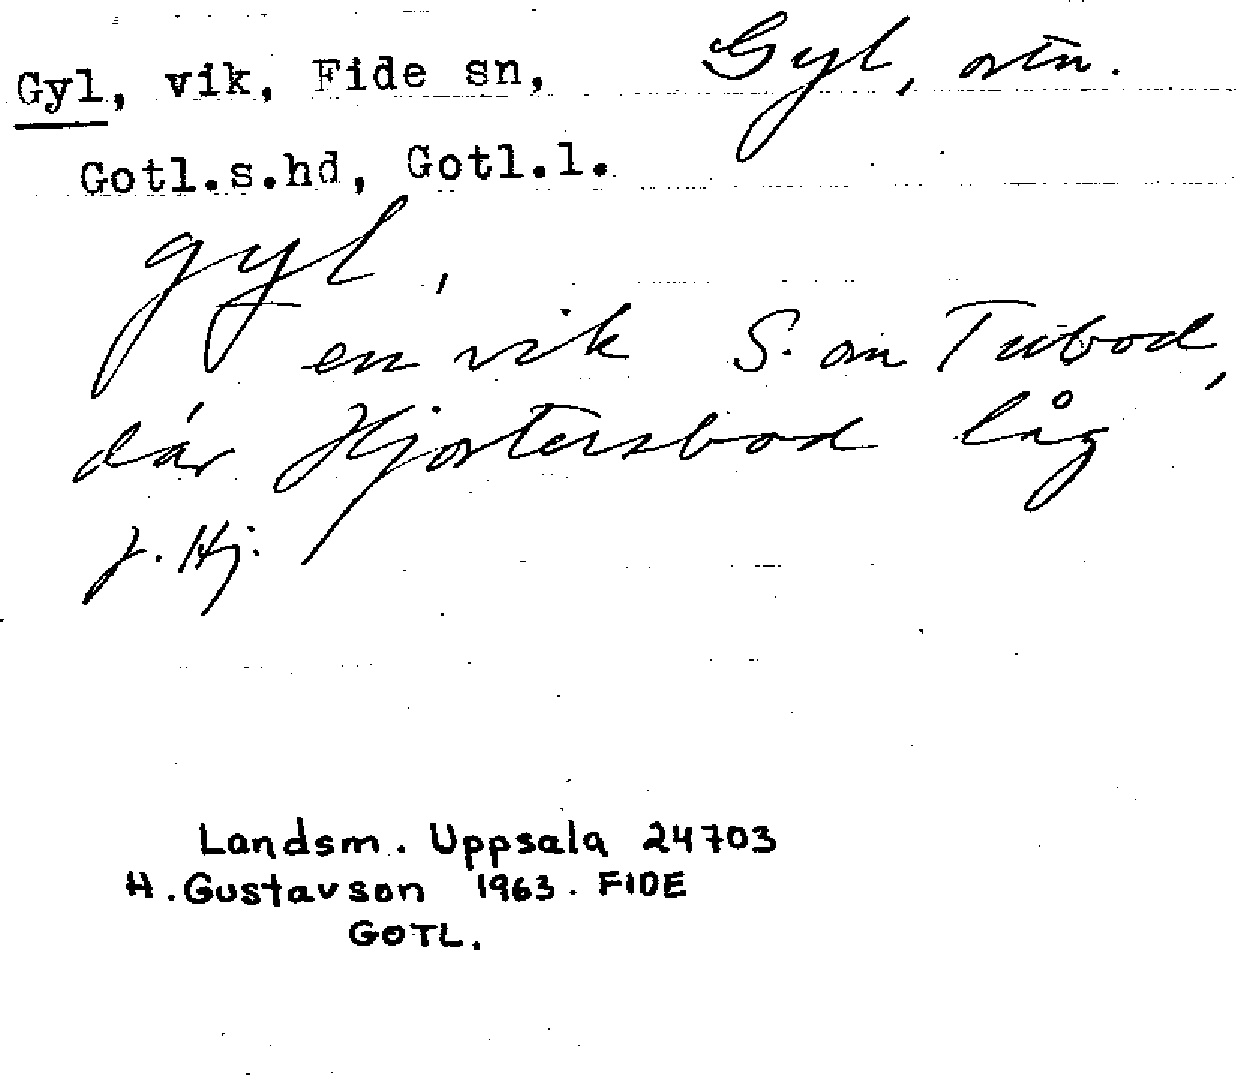 Gyl, vik, Fide sn, Gyl, ortn.
Gotl.s.hd, Gotl.l.
gyl,
en vik S. om Tubod,
där Hjortersbod låg
J. Hj.
Landsm. Uppsala 24703
H. Gustavson 1963. FIDE
GOTL.